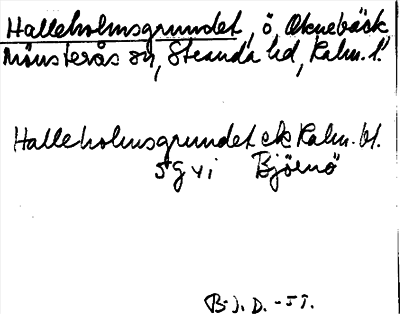 Halleholmsgrundet, ö, Oknebäck,
Mönsterås sn, Stranda hd, Kalm. l.
Halleholmsgrundet ek Kalm. bl.
5 G v i Björnö
B-j. D. -51.